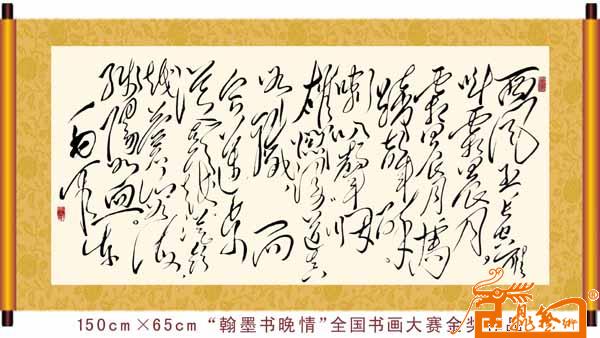 西风烈长空雁
叫霜晨月
霜晨月马
蹄声碎
喇叭声咽
雄关漫道真
如铁而
今迈步
从头越从头
越苍山如海
残阳如血
150cm×65cm“翰墨书晚情”全国书画大赛金奖